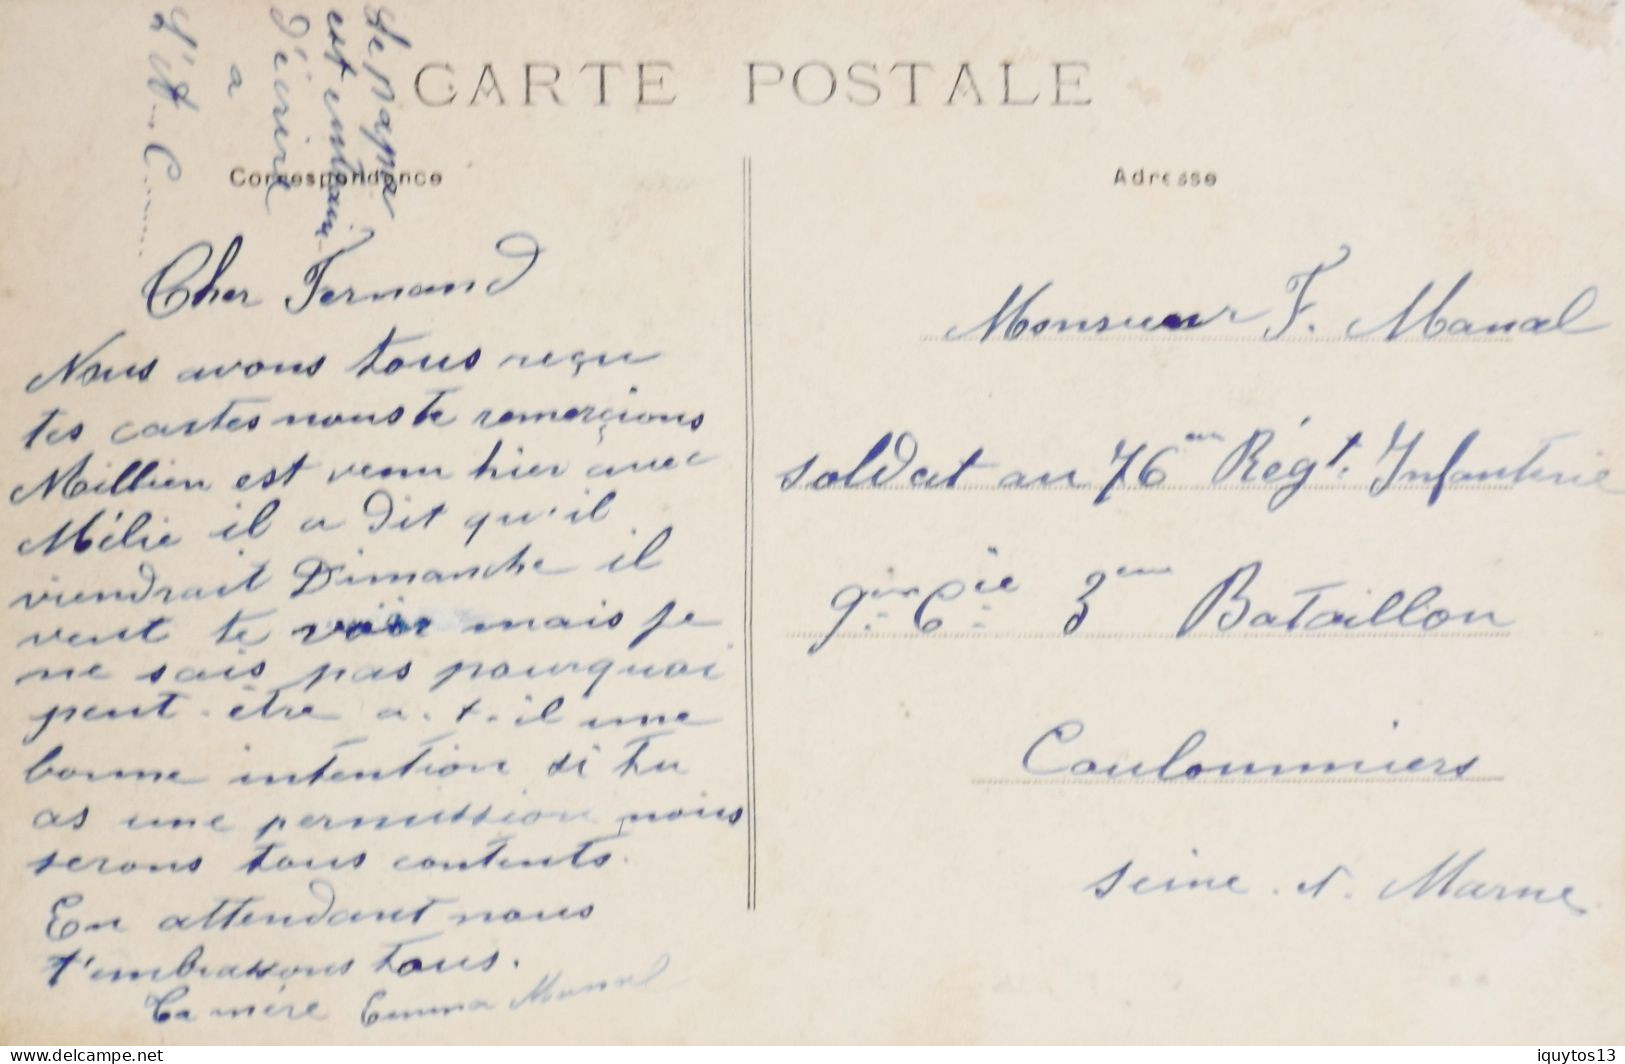 CARTE POSTALE
Correspondance
Adresse
Le papa
est entrain
d'écrire
a
Cher Fernand
Nous avons tous reçu
tes cartes nous te remerçions
Millien est venu hier avec
Mélie il a dit qu'il
viendrait Dimanche il
veut te voir mais je
ne sais pas pourquoi
peut-être a.t.il une
bonne intention si tu
as une permission nous
serons tous contents.
En attendant nous
t'embrassons tous.
Ta mère Emma Manal
Monsieur F. Manal
soldat au 76em Régt. Infanterie
9em Cie 3eme Bataillon
Coulommiers
Seine.et.Marne
iquytos13